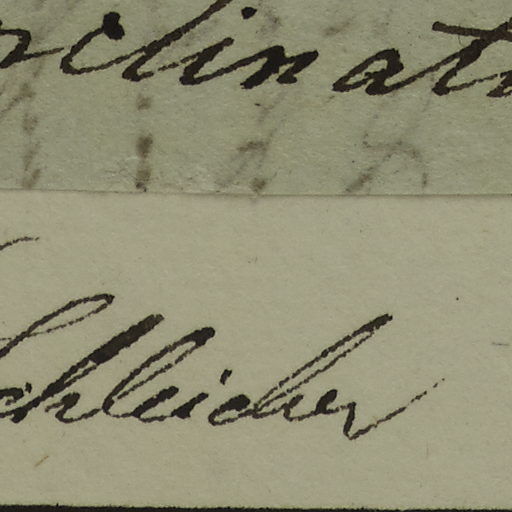 rclinat
Schleicher